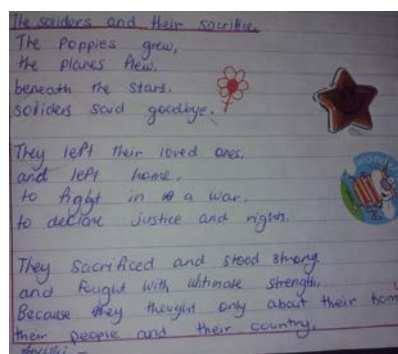 The soliders and their sacrifice.
The Poppies grew,
the planes flew,
beneath the stars.
soliders said goodbye.
They left their loved ones,
and left home,
to fight in a war,
to declare justice and rights.
They sacrificed and stood strong.
and fought with ultimate strength.
Because they thought only about their hom
their people and their country.